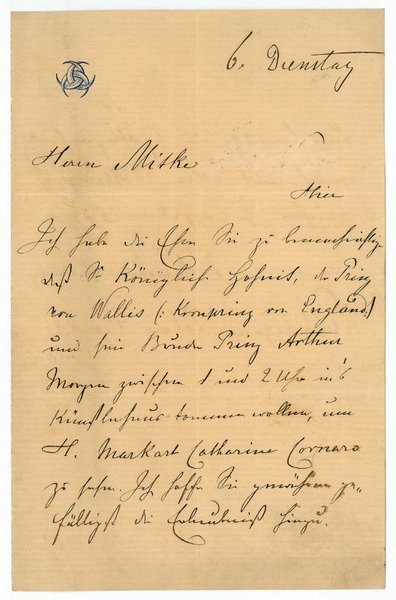 6. Dienstag
Herrn Mitke
Hier
Ich habe die Ehre Sie zu benachrichtigen
daß Sr Königliche Hoheit, der Prinz
von Wallis (: Kronprinz von England :)
und sein Bruder Prinz Arthur
Morgen zwischen 1 und 2 Uhr in's
Künstlerhaus kommen wollen, um
H. Markart Catharine Cornaro
zu sehen. Ich hoffe Sie gewähren ge-
fälligst die Erlaubniß hinzu.